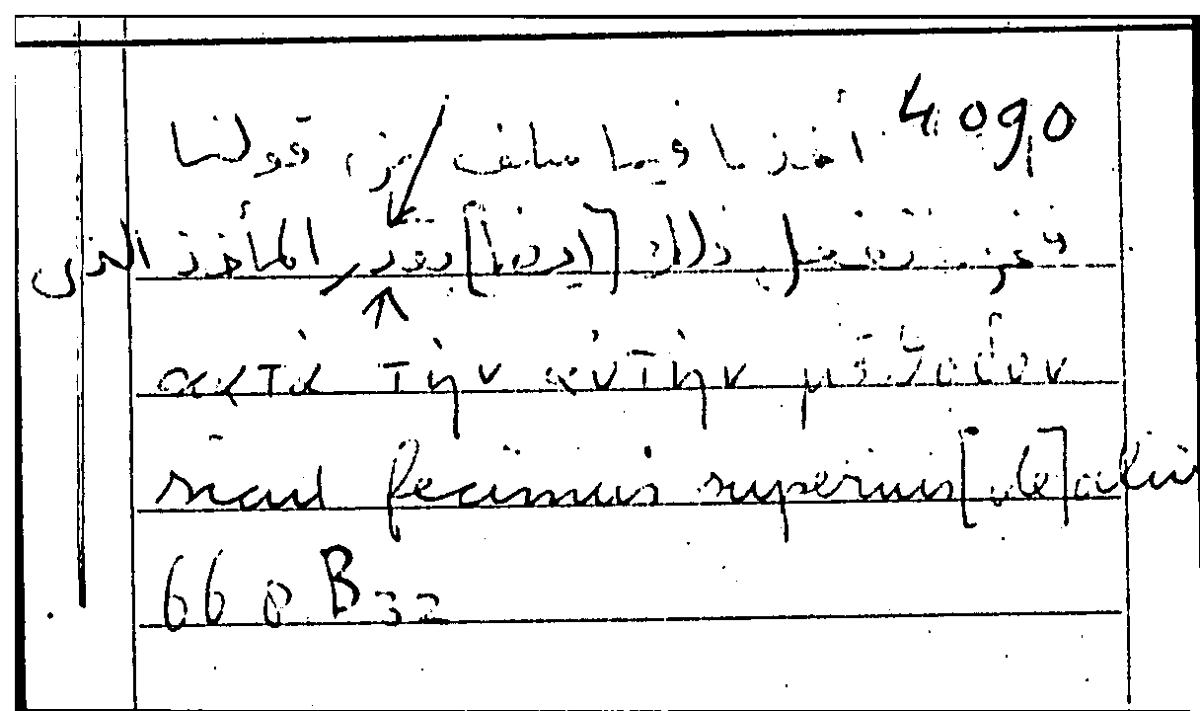 4090 أخذنا فيما سلف من قولنا
فنحن نفعل ذلك [ايضا] بقدر المأخذ الذى
κατὰ τὴν αὐτὴν μέθοδον
sicut fecimus superius [de] aliis
660 B 32